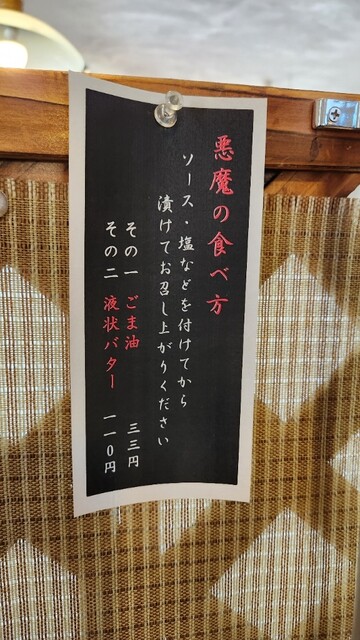 悪魔の食べ方
ソース・塩などを付けてから
漬けてお召し上がりください
その一 ごま油 三三円
その二 液状バター 一一0円